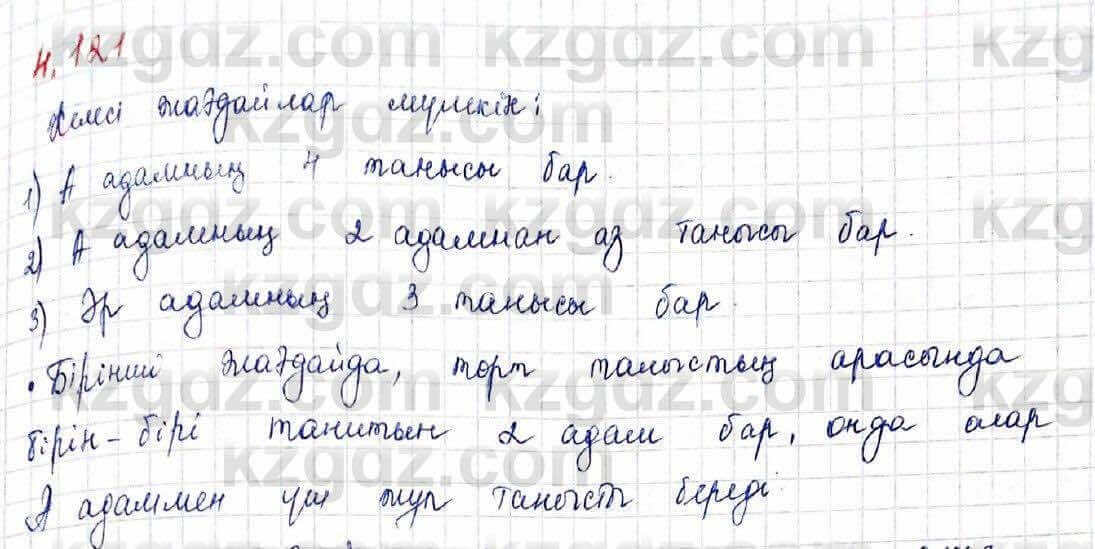 4.121
Келесі жағдайлар мүмкін:
1) А адамның 4 танысы бар.
2) А адамның 2 адамнан аз танысы бар.
3) Әр адамның 3 танысы бар.
• Бірінші жағдайда, төрт таныстың арасында
бірін-бірі танитын 2 адам бар, онда олар
А адаммен үш жұп танысты береді.
kzgdz.com